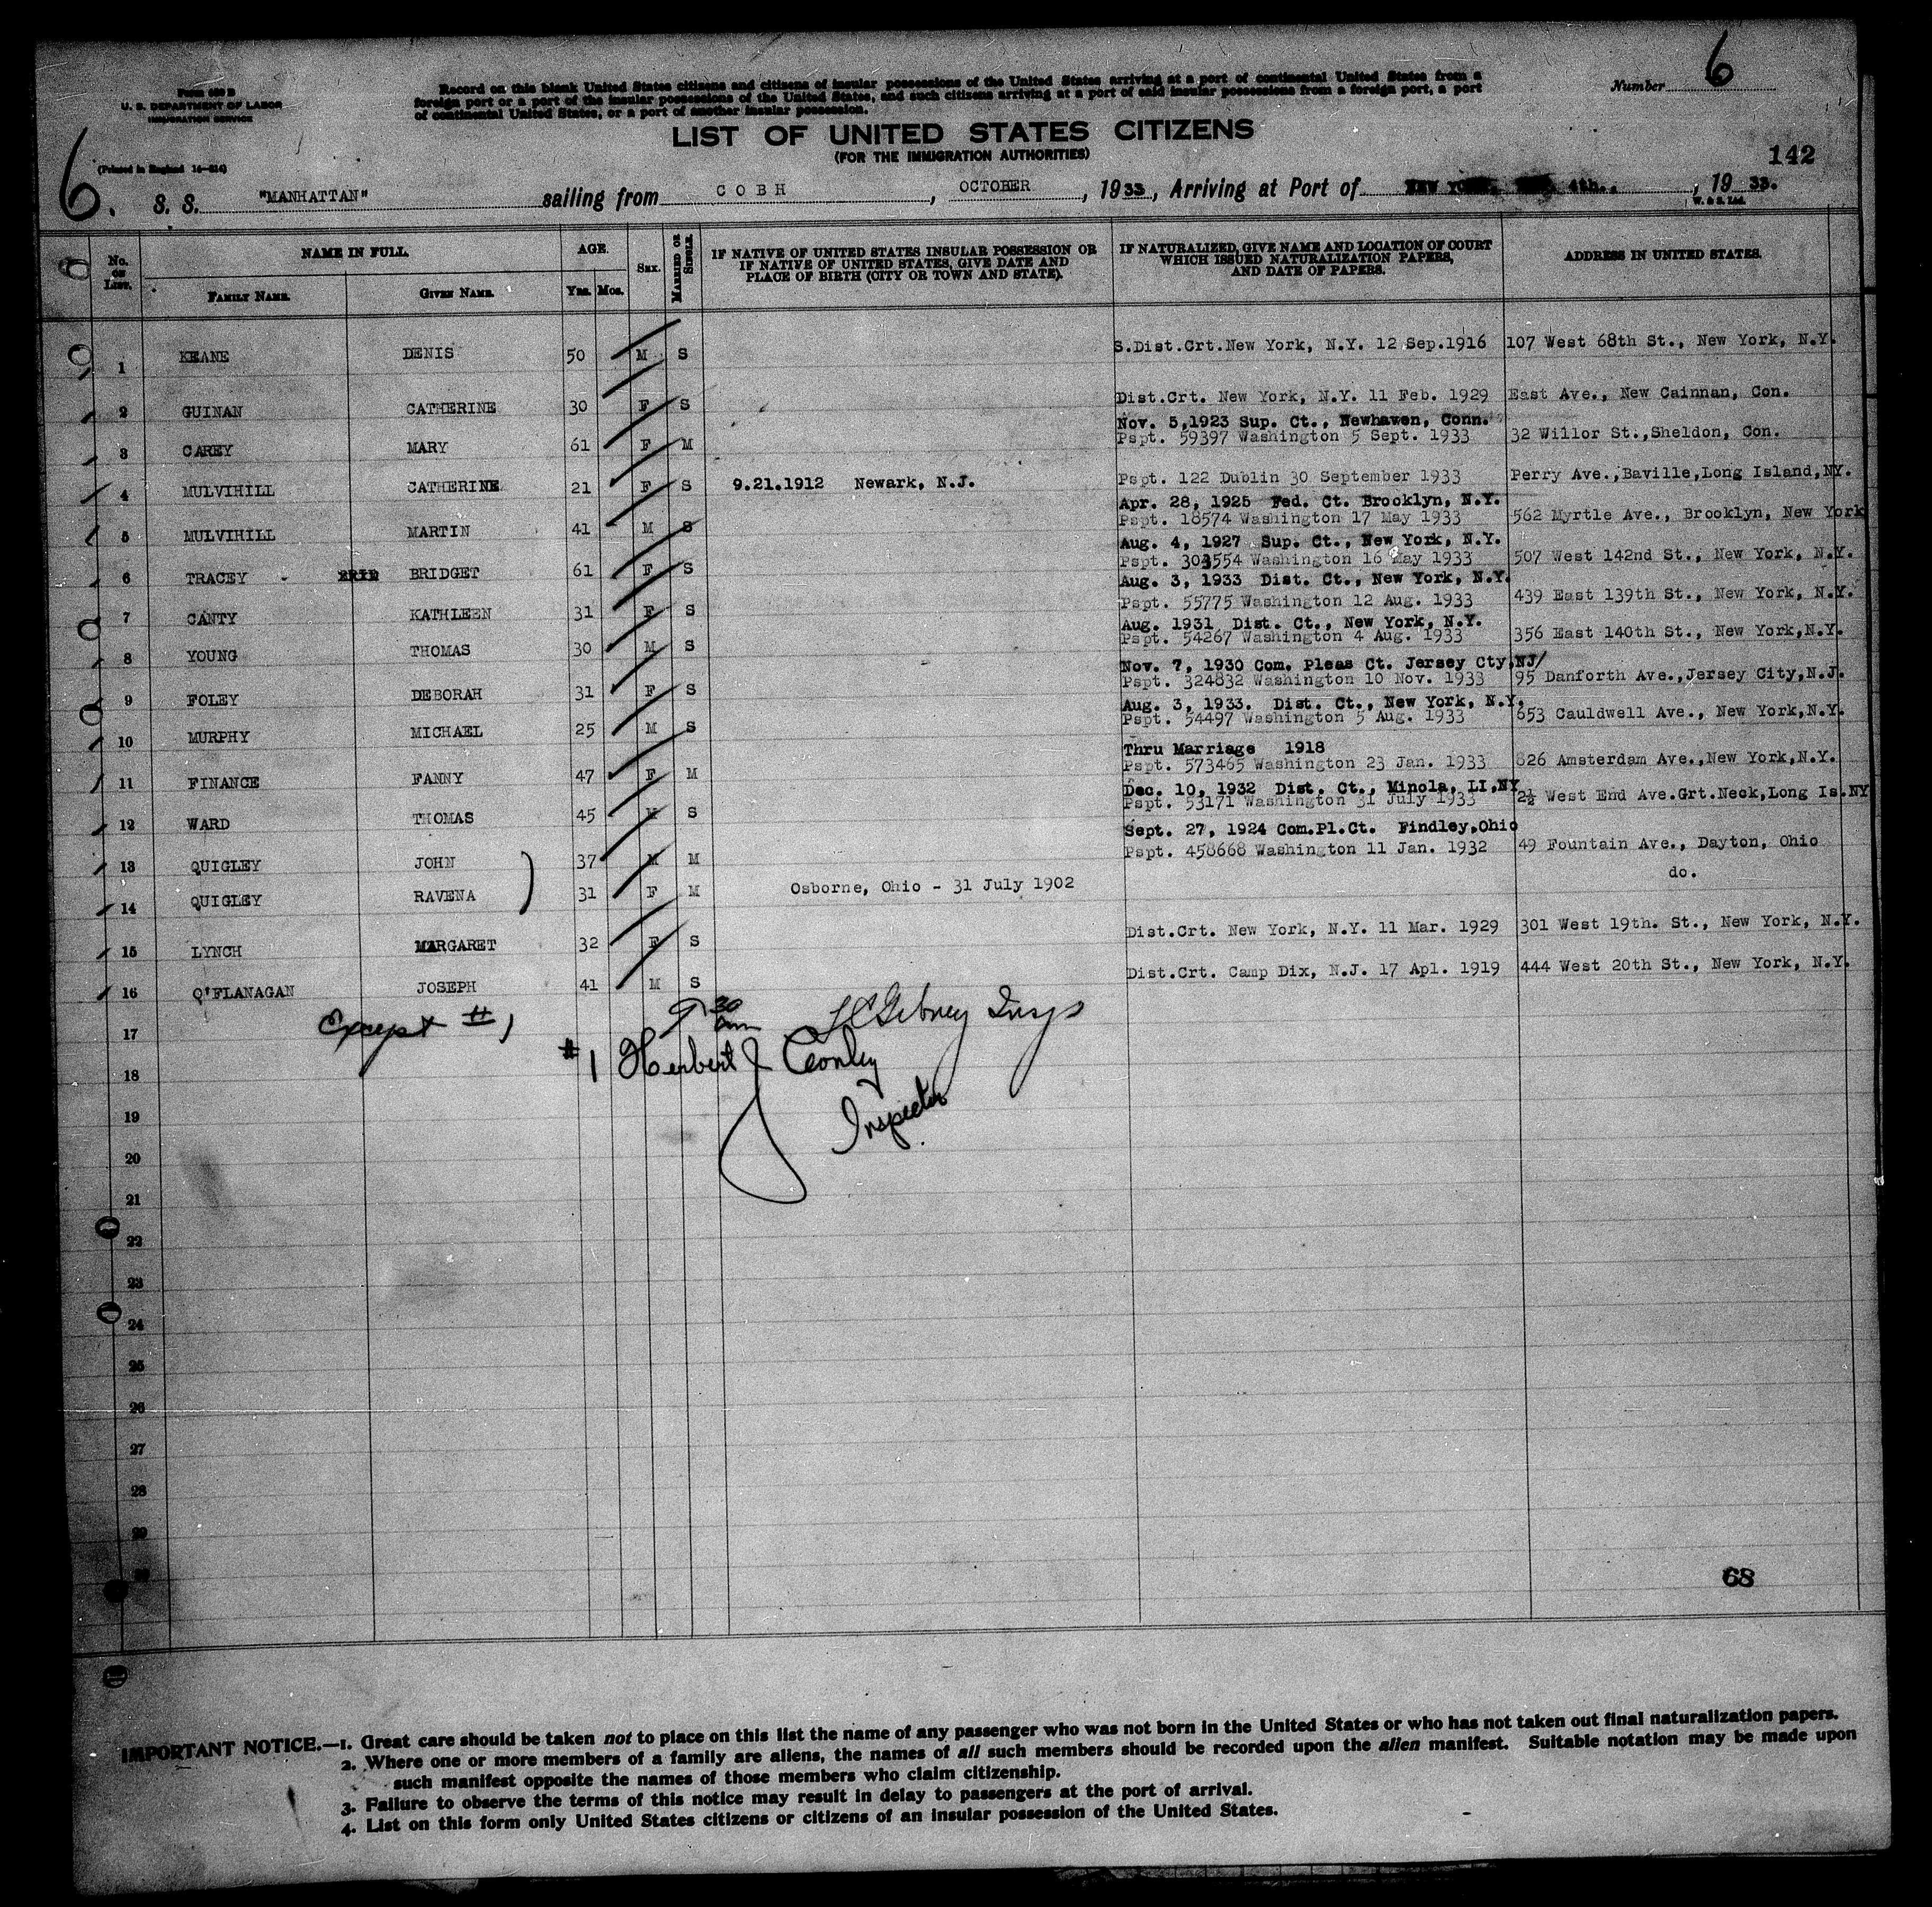 Number 6
Form 630 B
U. S. DEPARTMENT OF LABOR
IMMIGRATION SERVICE
Record on this blank United States citizens and citizens of insular possessions of the United States arriving at a port of continental United States from a
foreign port or a port of the insular possessions of the United States, and such citizens arriving at a port of said insular possessions from a foreign port, a port
of continental United States, or a port of another insular possession.
LIST OF UNITED STATES CITIZENS
(FOR THE IMMIGRATION AUTHORITIES)
142
(Printed in England
6.
S. S. "MANHATTAN" sailing from COBH, OCTOBER, 1933, Arriving at Port of NEW YORK, 4th., 1933.
W. & S. Ltd.
No. ON LIST. NAME IN FULL. AGE. SEX. MARRIED OR SINGLE. IF NATIVE OF UNITED STATES INSULAR POSSESSION OR IF NATIVE OF UNITED STATES, GIVE DATE AND PLACE OF BIRTH (CITY OR TOWN AND STATE). IF NATURALIZED, GIVE NAME AND LOCATION OF COURT WHICH ISSUED NATURALIZATION PAPERS, AND DATE OF PAPERS. ADDRESS IN UNITED STATES.
FAMILY NAME. GIVEN NAME. YRS. MOS.
1 KEANE DENIS 50 M S S.Dist.Crt.New York, N.Y. 12 Sep.1916 107 West 68th St., New York, N.Y.
2 GUINAN CATHERINE 30 F S Dist.Crt. New York, N.Y. 11 Feb. 1929 East Ave., New Cainnan, Con.
Nov. 5,1923 Sup. Ct., Newhaven, Conn.
3 CAREY MARY 61 F M Pspt. 59397 Washington 5 Sept. 1933 32 Willor St.,Sheldon, Con.
4 MULVIHILL CATHERINE 21 F S 9.21.1912 Newark, N.J. Pspt. 122 Dublin 30 September 1933 Perry Ave.,Baville,Long Island,NY.
Apr. 28, 1925 Fed. Ct. Brooklyn, N.Y.
5 MULVIHILL MARTIN 41 M S Pspt. 18574 Washington 17 May 1933 562 Myrtle Ave., Brooklyn, New York
Aug. 4, 1927 Sup. Ct., New York, N.Y.
6 TRACEY BRIDGET 61 F S Pspt. 303554 Washington 16 May 1933 507 West 142nd St., New York, N.Y.
Aug. 3, 1933 Dist. Ct., New York, N.Y.
7 CANTY KATHLEEN 31 F S Pspt. 55775 Washington 12 Aug. 1933 439 East 139th St., New York, N.Y.
Aug. 1931 Dist. Ct., New York, N.Y.
8 YOUNG THOMAS 30 M S Pspt. 54267 Washington 4 Aug. 1933 356 East 140th St., New York,N.Y.
Nov. 7, 1930 Com. Pleas Ct. Jersey Cty,NJ/
9 FOLEY DEBORAH 31 F S Pspt. 324832 Washington 10 Nov. 1933 95 Danforth Ave.,Jersey City,N.J.
Aug. 3, 1933. Dist. Ct., New York, N.Y.
10 MURPHY MICHAEL 25 M S Pspt. 54497 Washington 5 Aug. 1933 653 Cauldwell Ave., New York,N.Y.
Thru Marriage 1918
11 FINANCE FANNY 47 F M Pspt. 573465 Washington 23 Jan. 1933 826 Amsterdam Ave.,New York,N.Y.
Dec. 10, 1932 Dist. Ct., Minola, LI,NY
12 WARD THOMAS 45 M S Pspt. 53171 Washington 31 July 1933 2½ West End Ave.Grt.Neck,Long Is.NY
Sept. 27, 1924 Com.Pl.Ct. Findley,Ohio
13 QUIGLEY JOHN 37 M M Pspt. 458668 Washington 11 Jan. 1932 49 Fountain Ave., Dayton, Ohio
14 QUIGLEY RAVENA 31 F M Osborne, Ohio - 31 July 1902 do.
15 LYNCH MARGARET 32 F S Dist.Crt. New York, N.Y. 11 Mar. 1929 301 West 19th. St., New York, N.Y.
16 O'FLANAGAN JOSEPH 41 M S Dist.Crt. Camp Dix, N.J. 17 Apl. 1919 444 West 20th St., New York, N.Y.
17 Except #1 9 30 am Insp
18 #1 Herbert J Conley
19 Inspector
20
21
22
23
24
25
26
27
28
29
30
68
IMPORTANT NOTICE.—1. Great care should be taken not to place on this list the name of any passenger who was not born in the United States or who has not taken out final naturalization papers.
2. Where one or more members of a family are aliens, the names of all such members should be recorded upon the alien manifest. Suitable notation may be made upon
such manifest opposite the names of those members who claim citizenship.
3. Failure to observe the terms of this notice may result in delay to passengers at the port of arrival.
4. List on this form only United States citizens or citizens of an insular possession of the United States.